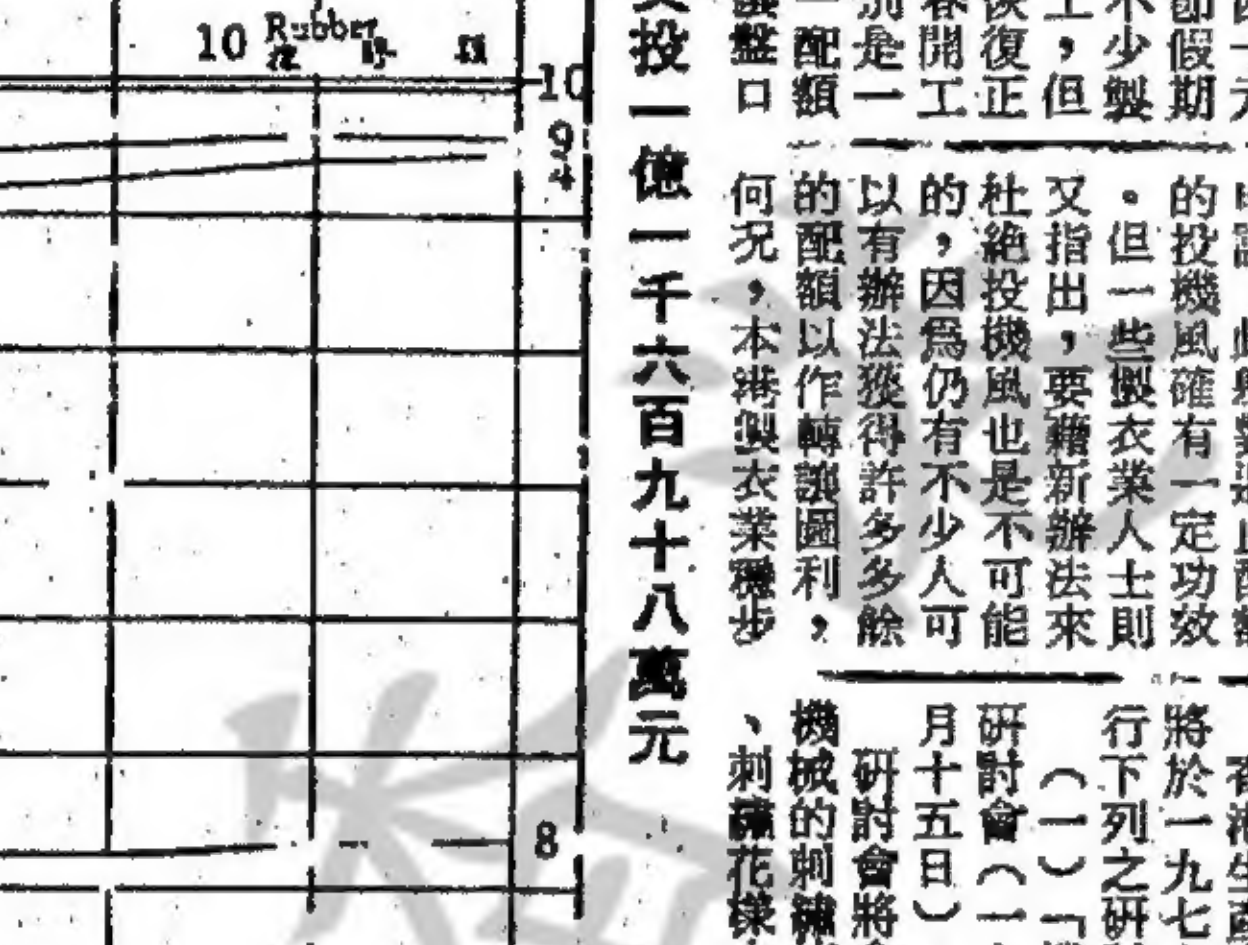 10 Rubber
10
9
4
8
投一億一千六百九十八萬元
節假期
不少製
上，但
恢復正
春開工
別是一
一配額
盤口
的投機風確有一定功效
。但一些製衣業人士則
又指出，要藉新辦法來
杜絕投機風也是不可能
的，因爲仍有不少人可
以有辦法獲得許多多餘
的配額以作轉讓圖利，
何况，本港製衣業穩步
將於一九七
行下列之研
（一）「
研討會（一
月十五日）
研討會將
機械的刺繡
、刺繡花樣